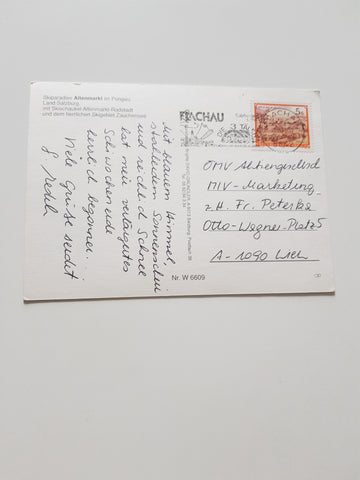 Skiparadies Altenmarkt im Pongau
Land Salzburg
mit Skischaukel Altenmarkt-Radstadt
und dem herrlichen Skigebiet Zauchensee
Mit blauem Himmel,
strahlendem Sonnenschein
und reichlich Schnee
hat mein verlängertes
Schiwochenende
herrlich begonnen.
Viele Grüße sendet
FLACHAU
3 TÄLER
5
OMV Aktiengesellsch
MIV-Marketing
z.H. Fr. Peterka
Otto-Wagner-Platz 5
A-1090 Wien
Nr. W 6609